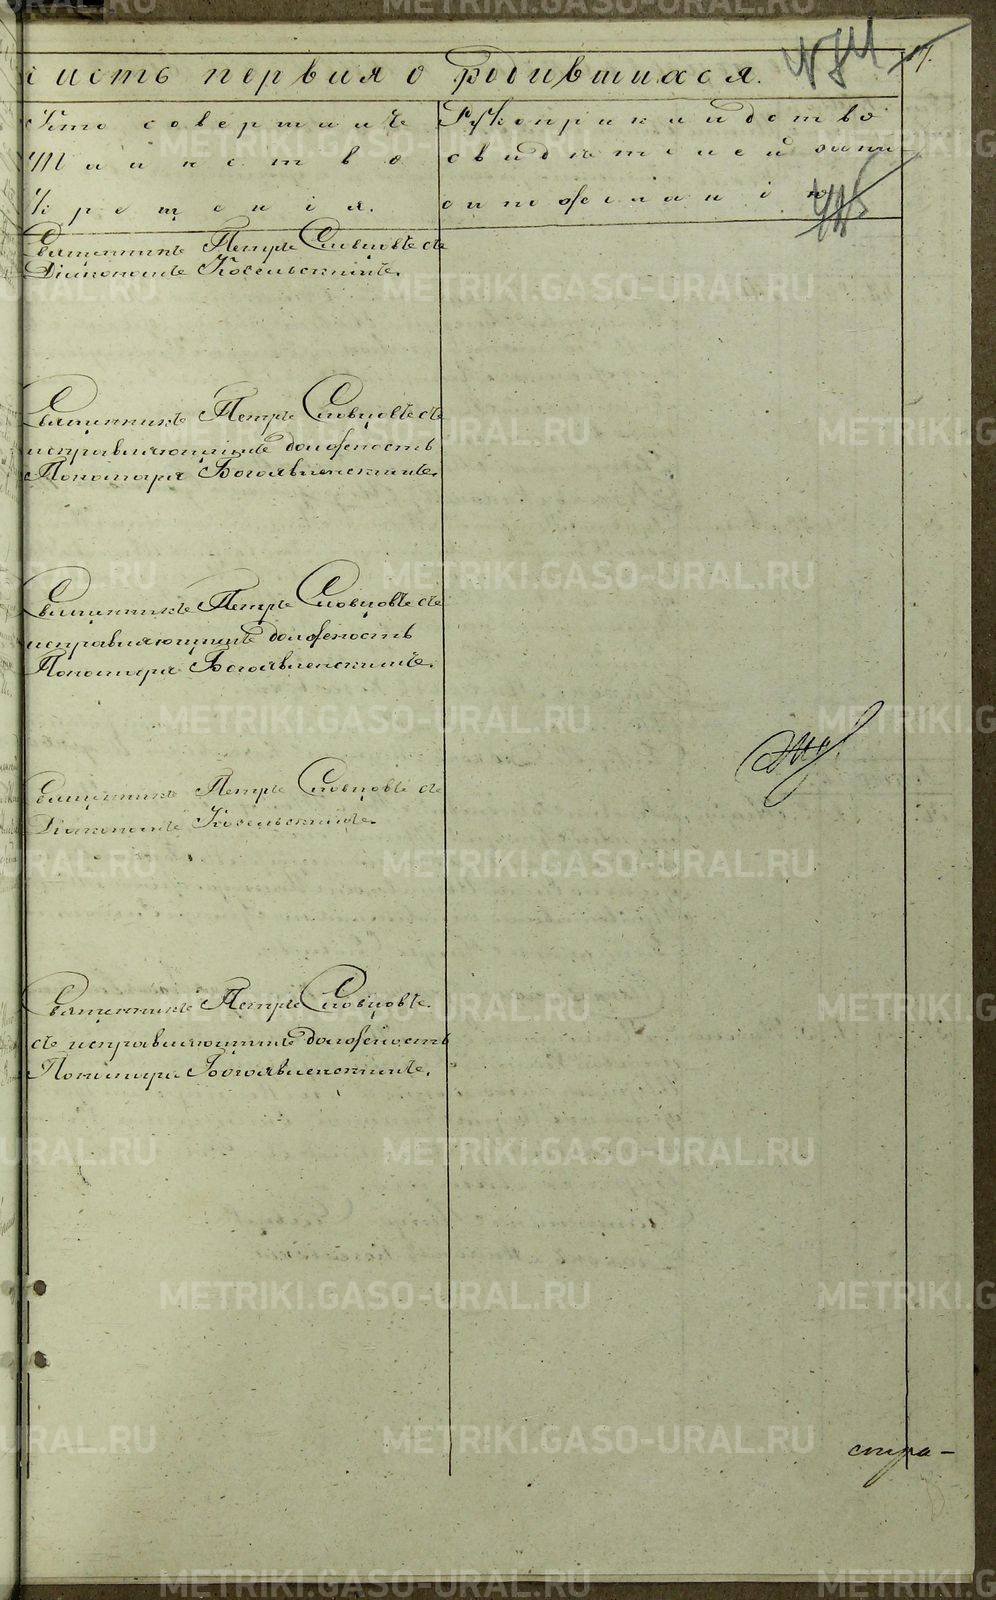 часть первыя о родившихся.
Кто совершилъ
Таинство
Крещенія.
Рукоприкладство
свидѣтелей запи-
си по желанію
Священникъ Петръ Словцовъ съ
Діакономъ Косельскимъ.
Священникъ Петръ Словцовъ съ
исправляющимъ должность
Пономаря Богоявленскимъ.
Священникъ Петръ Словцовъ съ
исправляющимъ должность
Пономаря Богоявленскимъ.
Священникъ Петръ Словцовъ съ
Діакономъ Косельскимъ.
Священникъ Петръ Словцовъ
съ исправляющимъ должность
Пономаря Богоявленскимъ.
стра-
METRIKI.GASO-URAL.RU